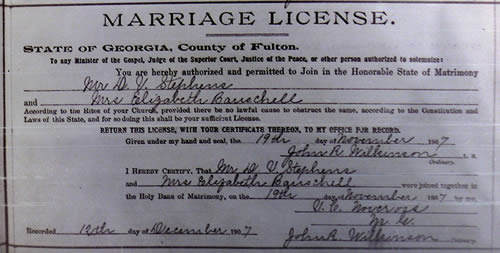 MARRIAGE LICENSE.
STATE OF GEORGIA, County of Fulton.
To any Minister of the Gospel, Judge of the Superior Court, Justice of the Peace, or other person authorized to solemnize:
You are hereby authorized and permitted to Join in the Honorable State of Matrimony
Mr D. V. Stephens
and Mrs Elizabeth Bauschell
According to the Rites of your Church, provided there be no lawful cause to obstruct the same, according to the Constitution and
Laws of this State, and for so doing this shall be your sufficient License.
RETURN THIS LICENSE, WITH YOUR CERTIFICATE THEREON, TO MY OFFICE FOR RECORD.
Given under my hand and seal, the 19th day of November 1907
John R. Wilkinson L. S.
Ordinary.
I HEREBY CERTIFY, That Mr D V Stephens
and Mrs Elizabeth Bauschell were joined together in
the Holy Bans of Matrimony, on the 19th day of November 1907 by me,
V. C. Norcross
M. G.
Recorded 12th day of December 1907 John R. Wilkinson
Ordinary.